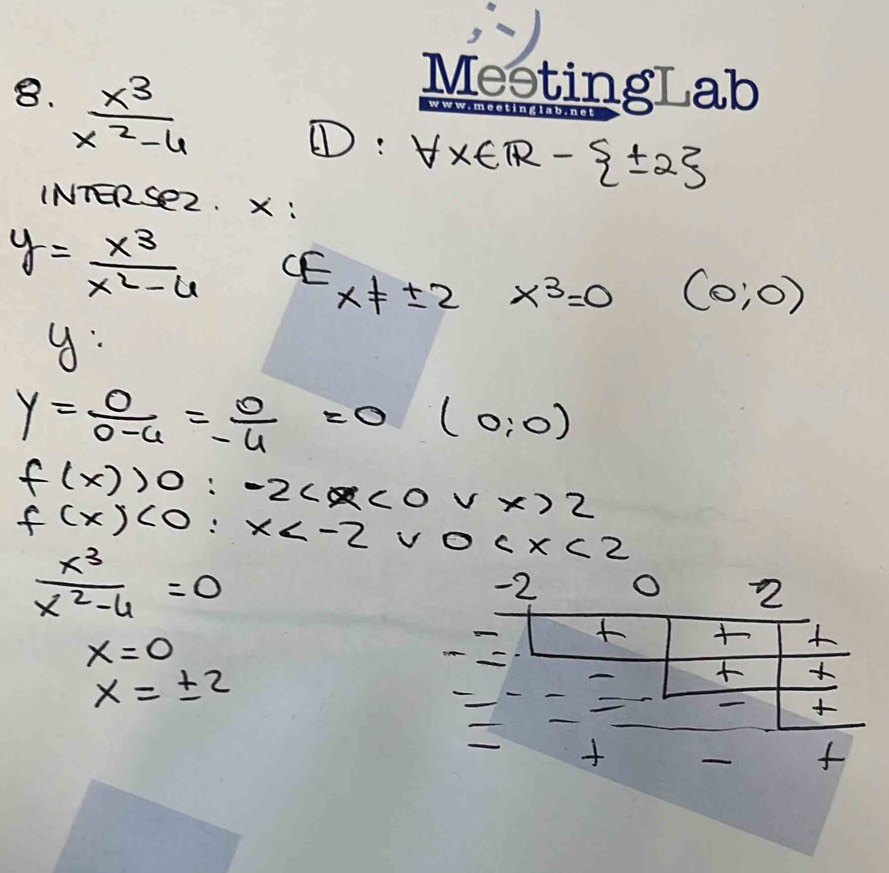 MeetingLab
www.meetinglab.net
8. x³/(x²-4) D: ∀x∈ℝ - {±2}
INTERSEZ. x:
y = x³/(x²-4) CE x≠±2 x³=0 (0;0)
y:
y = 0/(0-4) = 0/-4 = 0 (0;0)
f(x)>0: -2<x<0 ∨ x>2
f(x)<0: x<-2 ∨ 0<x<2
x³/(x²-4) = 0
x=0
x=±2
-2 0 2
- + + +
- - + +
- - - +
- + - +